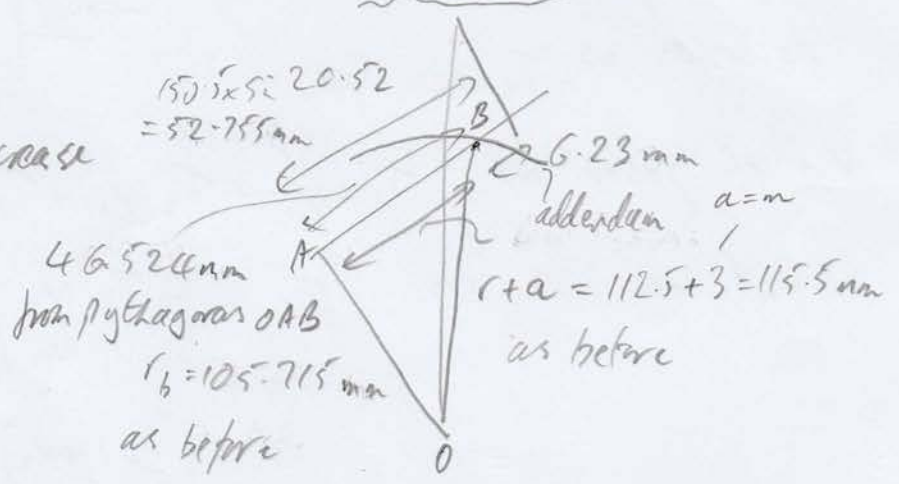 150.5 x Si 20.52
= 52.755 mm
crease
B
6.23 mm
addendum
a = m
A
46.524 mm
from pythagoras OAB
r + a = 112.5 + 3 = 115.5 mm
as before
rb = 105.715 mm
as before
O